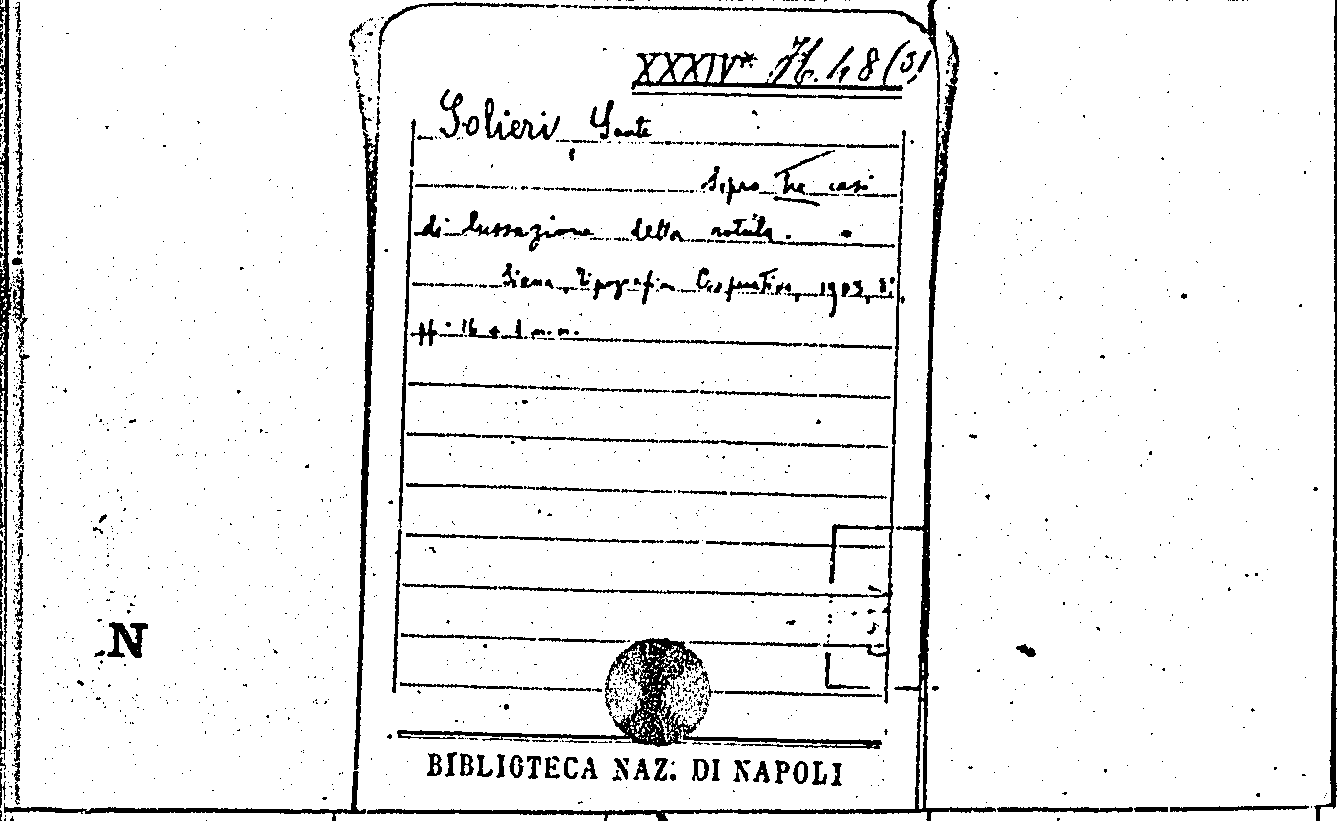 XXXIV* H. 48 (5)
Solieri Sante
Sopra tre casi
di lussazione della rotula.
Siena, Tipografia Cooperativa, 1903, 8°,
pp. 16 + 1 n.n.
N
BIBLIOTECA NAZ. DI NAPOLI